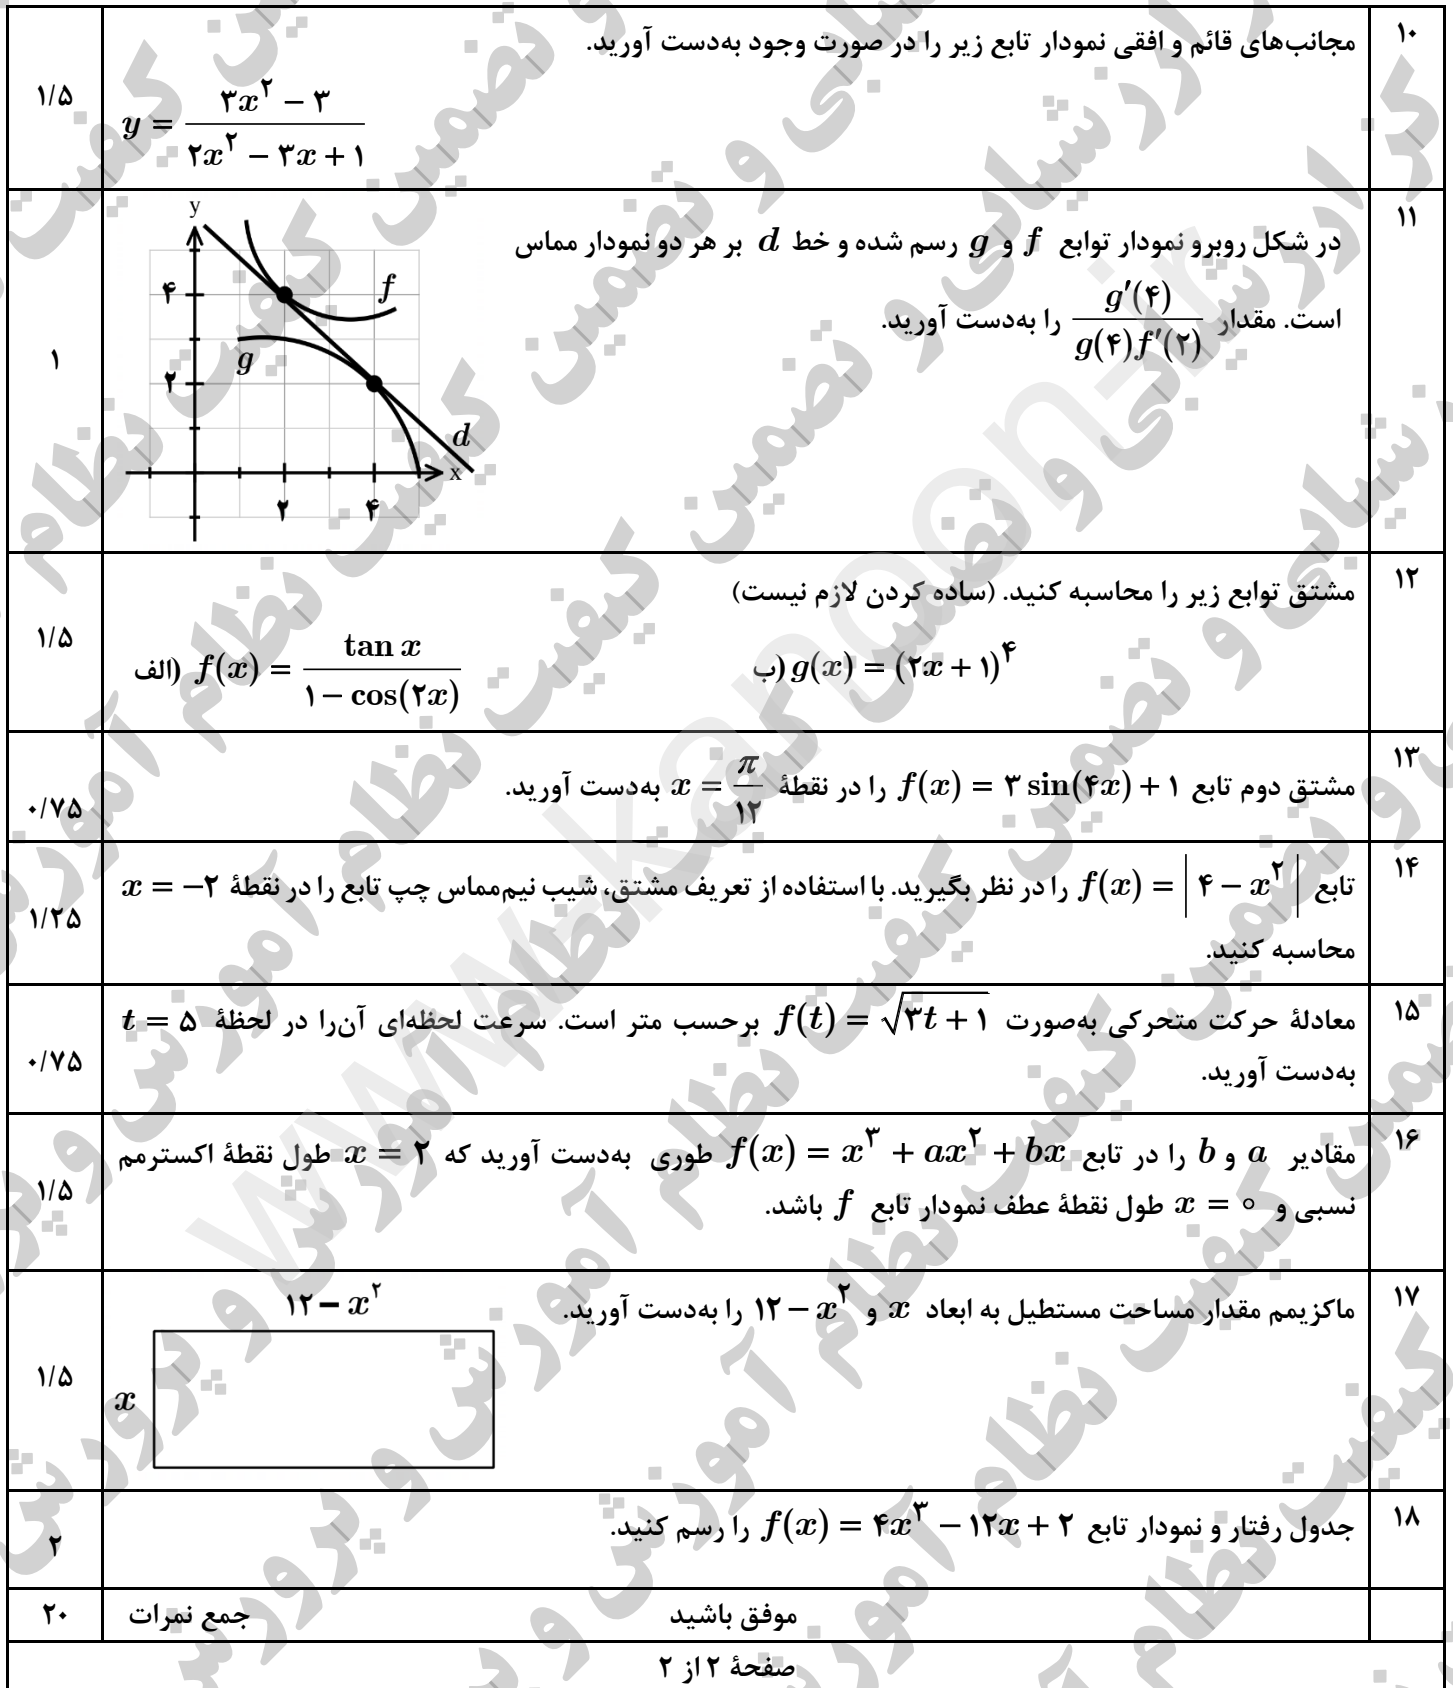 ۱۰
مجانب‌های قائم و افقی نمودار تابع زیر را در صورت وجود به‌دست آورید.
y = (۳x^۲ − ۳) / (۲x^۲ − ۳x + ۱)
۱/۵
۱۱
در شکل روبرو نمودار توابع f و g رسم شده و خط d بر هر دو نمودار مماس
است. مقدار g′(۴) / (g(۴)f′(۲)) را به‌دست آورید.
y
۴
f
g
۲
d
x
۲ ۴
۱
۱۲
مشتق توابع زیر را محاسبه کنید. (ساده کردن لازم نیست)
الف) f(x) = tan x / (۱ − cos(۲x))
ب) g(x) = (۲x + ۱)^۴
۱/۵
۱۳
مشتق دوم تابع f(x) = ۳ sin(۴x) + ۱ را در نقطهٔ x = π/۱۲ به‌دست آورید.
۰/۷۵
۱۴
تابع f(x) = |۴ − x^۲| را در نظر بگیرید. با استفاده از تعریف مشتق، شیب نیم‌مماس چپ تابع را در نقطهٔ x = −۲
محاسبه کنید.
۱/۲۵
۱۵
معادلهٔ حرکت متحرکی به‌صورت f(t) = √(۳t + ۱) برحسب متر است. سرعت لحظه‌ای آن‌را در لحظهٔ t = ۵
به‌دست آورید.
۰/۷۵
۱۶
مقادیر a و b را در تابع f(x) = x^۳ + ax^۲ + bx طوری به‌دست آورید که x = ۲ طول نقطهٔ اکسترمم
نسبی و x = ۰ طول نقطهٔ عطف نمودار تابع f باشد.
۱/۵
۱۷
ماکزیمم مقدار مساحت مستطیل به ابعاد x و ۱۲ − x^۲ را به‌دست آورید.
۱۲ − x^۲
x
۱/۵
۱۸
جدول رفتار و نمودار تابع f(x) = ۴x^۳ − ۱۲x + ۲ را رسم کنید.
۲
موفق باشید
جمع نمرات
۲۰
صفحهٔ ۲ از ۲